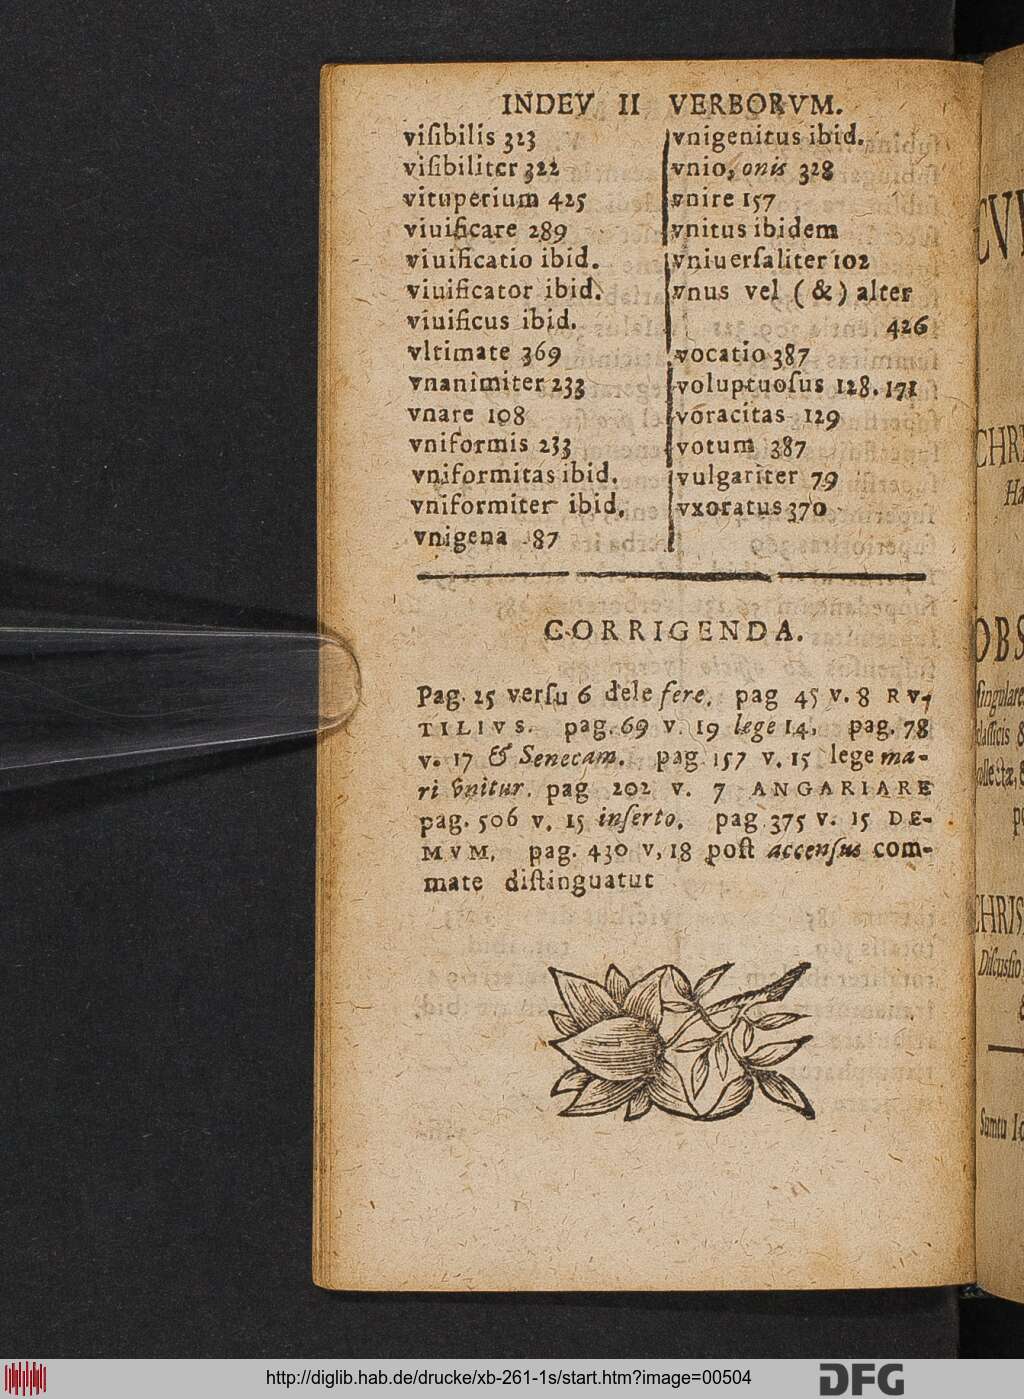 INDEV II VERBORVM.
viſibilis 323
viſibiliter 322
vituperium 425
viuificare 289
viuificatio ibid.
viuificator ibid.
viuificus ibid.
vltimate 369
vnanimiter 233
vnare 108
vniformis 233
vniformitas ibid.
vniformiter ibid.
vnigena 87
vnigenitus ibid.
vnio, onis 328
vnire 157
vnitus ibidem
vniuerſaliter 102
vnus vel (&) alter
426
vocatio 387
voluptuoſus 128. 171
voracitas 129
votum 387
vulgariter 79
vxoratus 370
CORRIGENDA.
Pag. 25 verſu 6 dele fere. pag 45 v. 8 RV-
TILIVS. pag. 69 v. 19 lege 14, pag. 78
v. 17 & Senecam. pag 157 v. 15 lege ma-
ri vnitur. pag 202 v. 7 ANGARIARE
pag. 506 v. 15 inſerto. pag 375 v. 15 DE-
MVM. pag. 430 v, 18 poſt accenſus com-
mate diſtinguatut
CHRI
Ha
OBS
ſingulare
claſſicis &
CHRIS
Diſcuſſio
Sumtu
http://diglib.hab.de/drucke/xb-261-1s/start.htm?image=00504
DFG